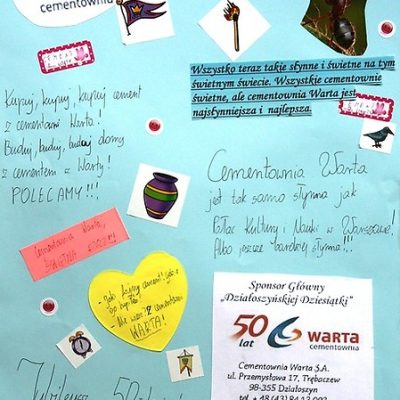 cementownia
Wszystko teraz takie słynne i świetne na tym
świetnym świecie. Wszystkie cementownie
świetne, ale cementownia Warta jest
najsłynniejsza i najlepsza.
Kupuj, kupuj, kupuj cement
z cementowni Warta!
Buduj, buduj, buduj domy
z cementem z Warty!
POLECAMY!!!
Cementownia Warta
jest tak samo słynna jak
Pałac Kultury i Nauki w Warszawie!
Albo jeszcze bardziej słynna!!!
Cementownia Warta,
cement
WARTA!
Sponsor Główny
„Działoszyńskiej Dziesiątki"
50 lat
warta
cementownia
Cementownia Warta S.A.
ul. Przemysłowa 17, Trębaczew
98-355 Działoszyn
tel. +48 (43) 84 13 003
Jubileusz 50